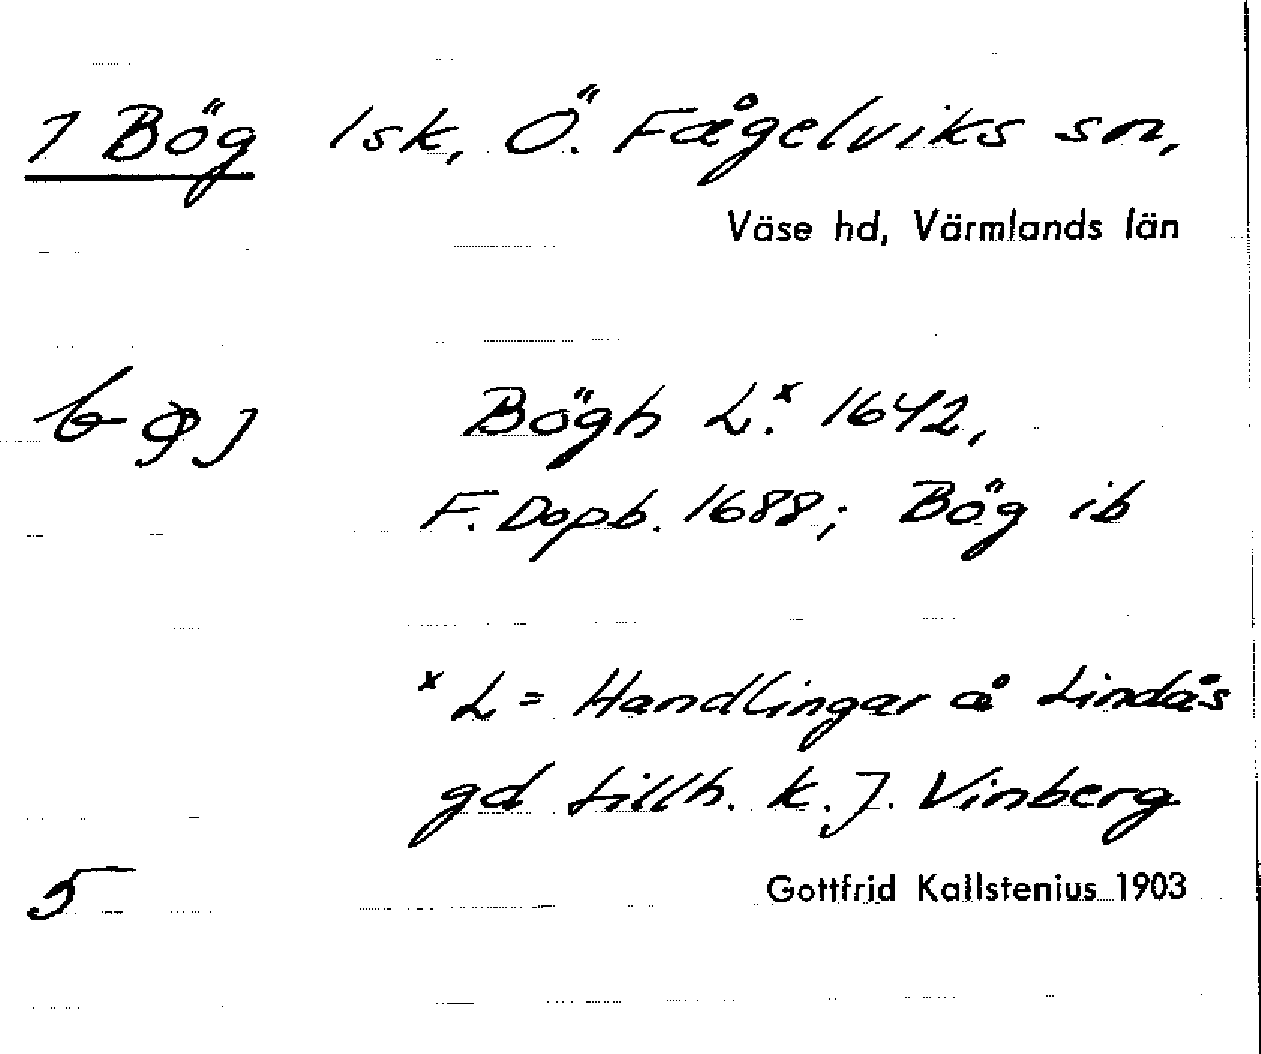 1 Bög 1sk, Ö. Fågelviks sn,
Väse hd, Värmlands län
Bögh L.x 1642,
F. Dopb. 1688; Bög ib
x L = Handlingar å Lindås
gd tillh. k. J. Vinberg
5 Gottfrid Kallstenius 1903